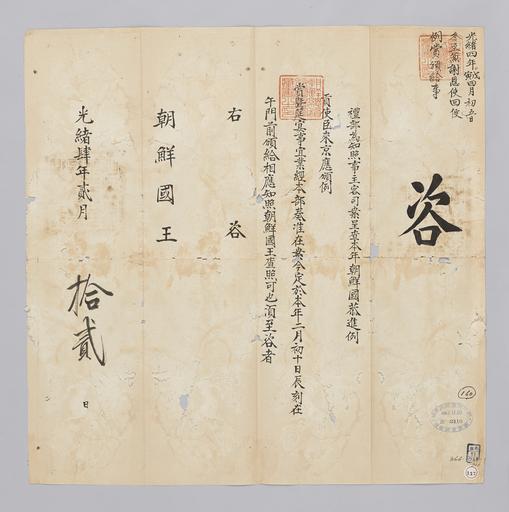 光緒四年戊寅四月初五日
冬至兼謝恩使回便
例賞頒給事
咨
禮部爲知照事主客司案呈查本年朝鮮國恭進例
貢使臣來京應頒例
賞筵宴事宜業經本部奏准在案今定於本年二月初十日辰刻在
午門前頒給相應知照朝鮮國王查照可也須至咨者
右咨
朝鮮國王
光緒肆年貳月
拾貳
日
160